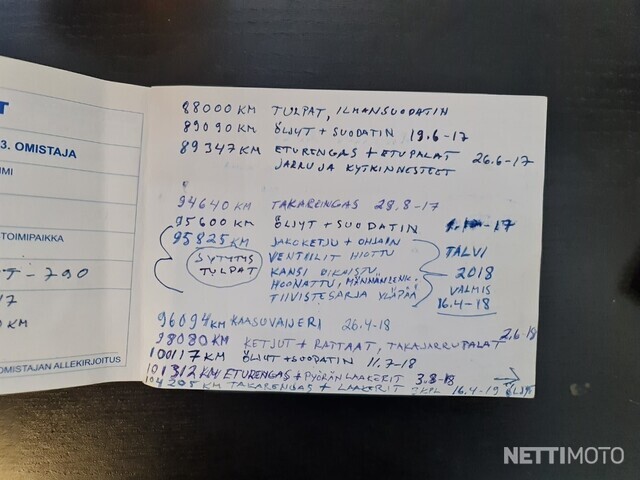 T
3. OMISTAJA
IMI
TOIMIPAIKKA
T-790
17
0 KM
OMISTAJAN ALLEKIRJOITUS
88000 KM TULPAT, ILMANSUODATIN
89090 KM ÖLJYT + SUODATIN 19.6-17
89347 KM ETURENGAS + ETUPALAT 26.6-17
JARRU JA KYTKINNESTEET
94640 KM TAKARENGAS 29.8-17
95600 KM ÖLJYT + SUODATIN -17
95825 KM JAKOKETJU + OHJAIN
SYTYTYS VENTTIILIT HIOTTU TALVI
TULPAT KANSI OIKAISTU, 2018
HOONATTU, MÄNNÄNRENK. VALMIS
TIIVISTESARJA YLÄPÄÄ 16.4-18
96094 KM KAASUVAIJERI 26.4-18
98080 KM KETJUT + RATTAAT, TAKAJARRUPALAT 2.6-18
100117 KM ÖLJYT + SUODATIN 11.7-18
101312 KM ETURENGAS + PYÖRÄNLAAKERIT 3.8-18
104205 KM TAKARENGAS + LAAKERIT 2KPL 16.4-19 ÖLJYT
NETTIMOTO